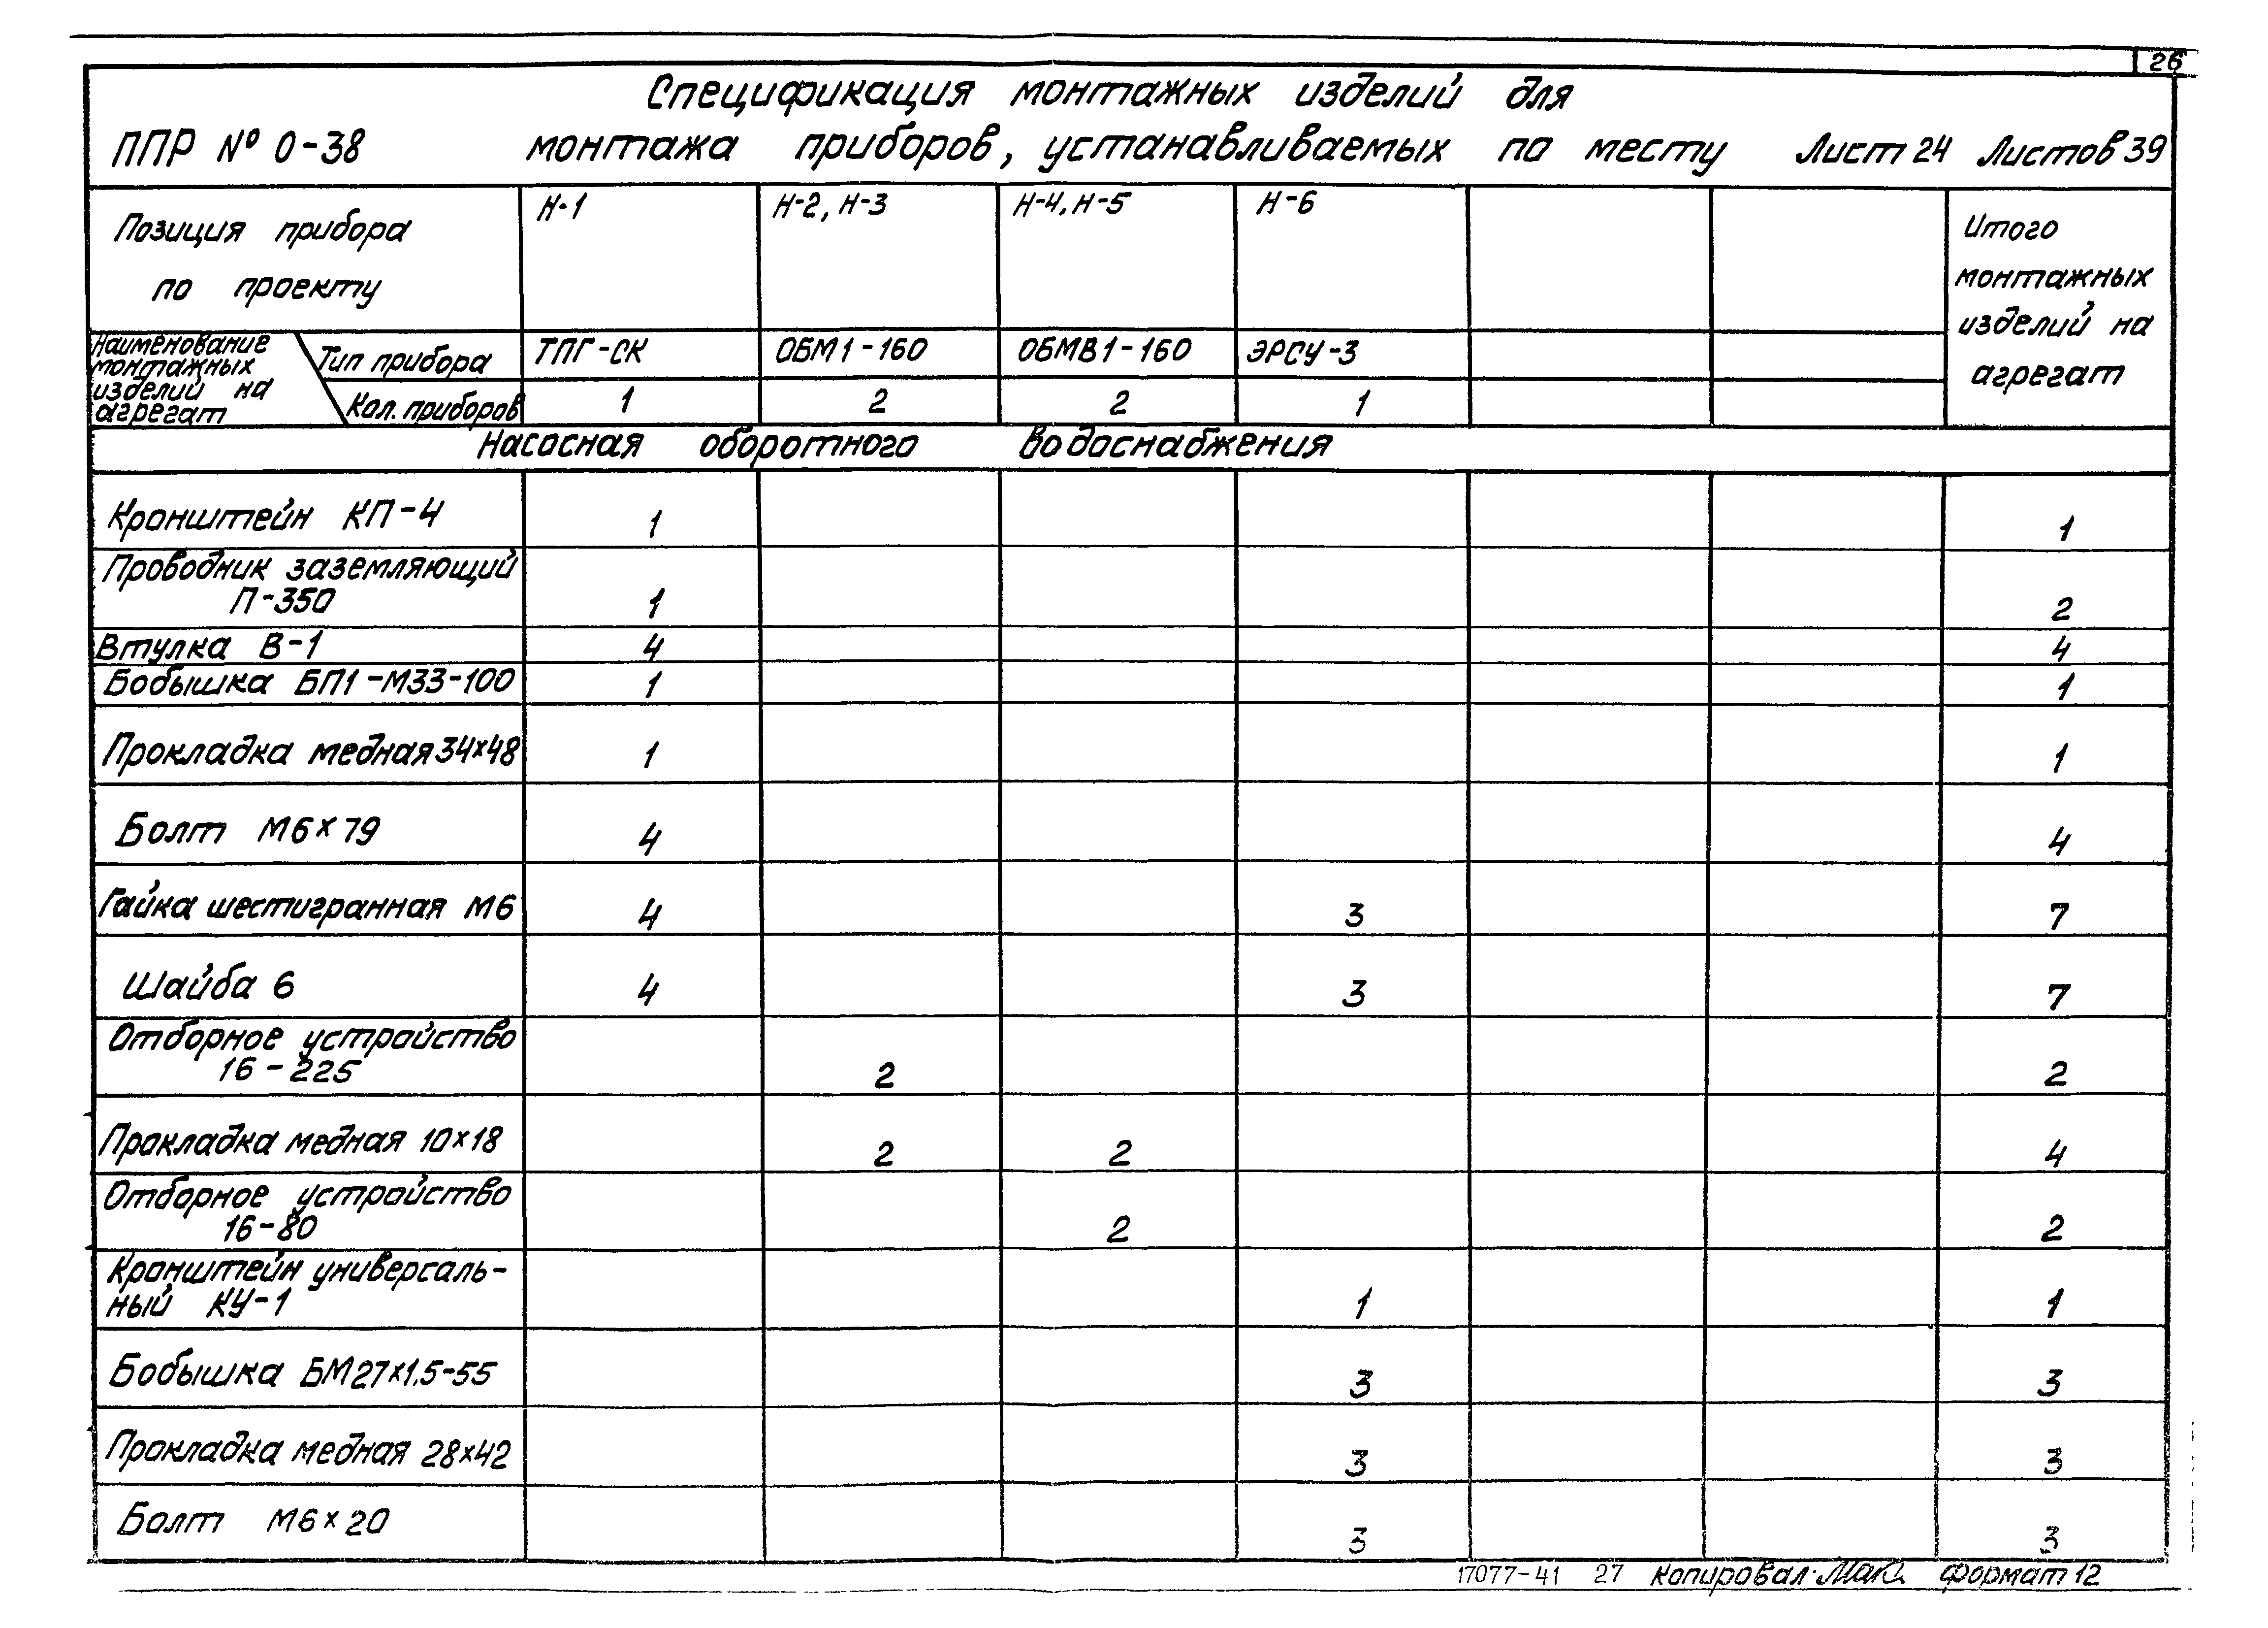 26
Спецификация монтажных изделий для
ППР № 0-38 монтажа приборов, устанавливаемых по месту Лист 24 Листов 39
Позиция прибора
по проекту
Н-1
Н-2, Н-3
Н-4, Н-5
Н-6
Итого
монтажных
изделий на
агрегат
Наименование
монтажных
изделий на
агрегат
Тип прибора ТПГ-СК ОБМ1-160 ОБМВ1-160 ЭРСУ-3
Кол. приборов 1 2 2 1
Насосная оборотного водоснабжения
Кронштейн КП-4 1 1
Проводник заземляющий
П-350 1 2
Втулка В-1 4 4
Бобышка БП1-М33-100 1 1
Прокладка медная 34×48 1 1
Болт М6×79 4 4
Гайка шестигранная М6 4 3 7
Шайба 6 4 3 7
Отборное устройство
16-225 2 2
Прокладка медная 10×18 2 2 4
Отборное устройство
16-80 2 2
Кронштейн универсаль-
ный КУ-1 1 1
Бобышка БМ27×1,5-55 3 3
Прокладка медная 28×42 3 3
Болт М6×20 3 3
17077-41 27 Копировал: Формат 12